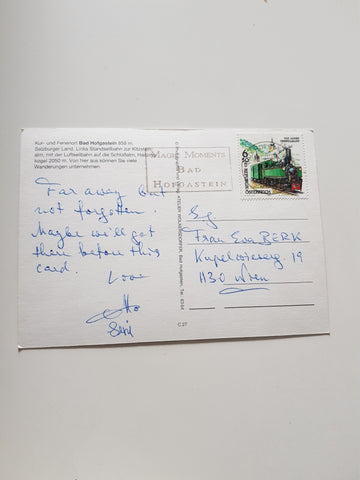 Kur- und Ferienort Bad Hofgastein 858 m,
Salzburger Land. Links Standseilbahn zur Kitzstein-
alm, mit der Luftseilbahn auf die Schloßalm, Hasseck-
kogel 2050 m. Von hier aus können Sie viele
Wanderungen unternehmen.
MAGIC MOMENTS
BAD
HOFGASTEIN
6
ÖSTERREICH
Far away but
not forgotten.
Maybe will get
there before this
card.
Love
Otto
Frau Eva BERK
Kupelwieserg. 19
1130 Wien
C 27